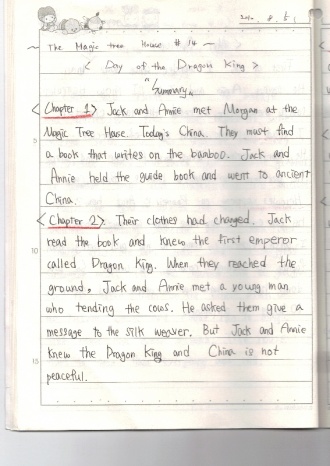 2010. 8. 5.
~ The Magic tree House #14 ~
< Day of the Dragon King >
"Summary"
<Chapter 1> Jack and Annie met Morgan at the
Magic Tree House. Today's China. They must find
5
a book that writes on the bamboo. Jack and
Annie held the guide book and went to ancient
China.
<Chapter 2> Their clothes had changed. Jack
10
read the book and knew the first emperor
called Dragon King. When they reached the
ground, Jack and Annie met a young man
who tending the cows. He asked them give a
message to the silk weaver. But Jack and Annie
15
knew the Dragon King and China is not
peaceful.